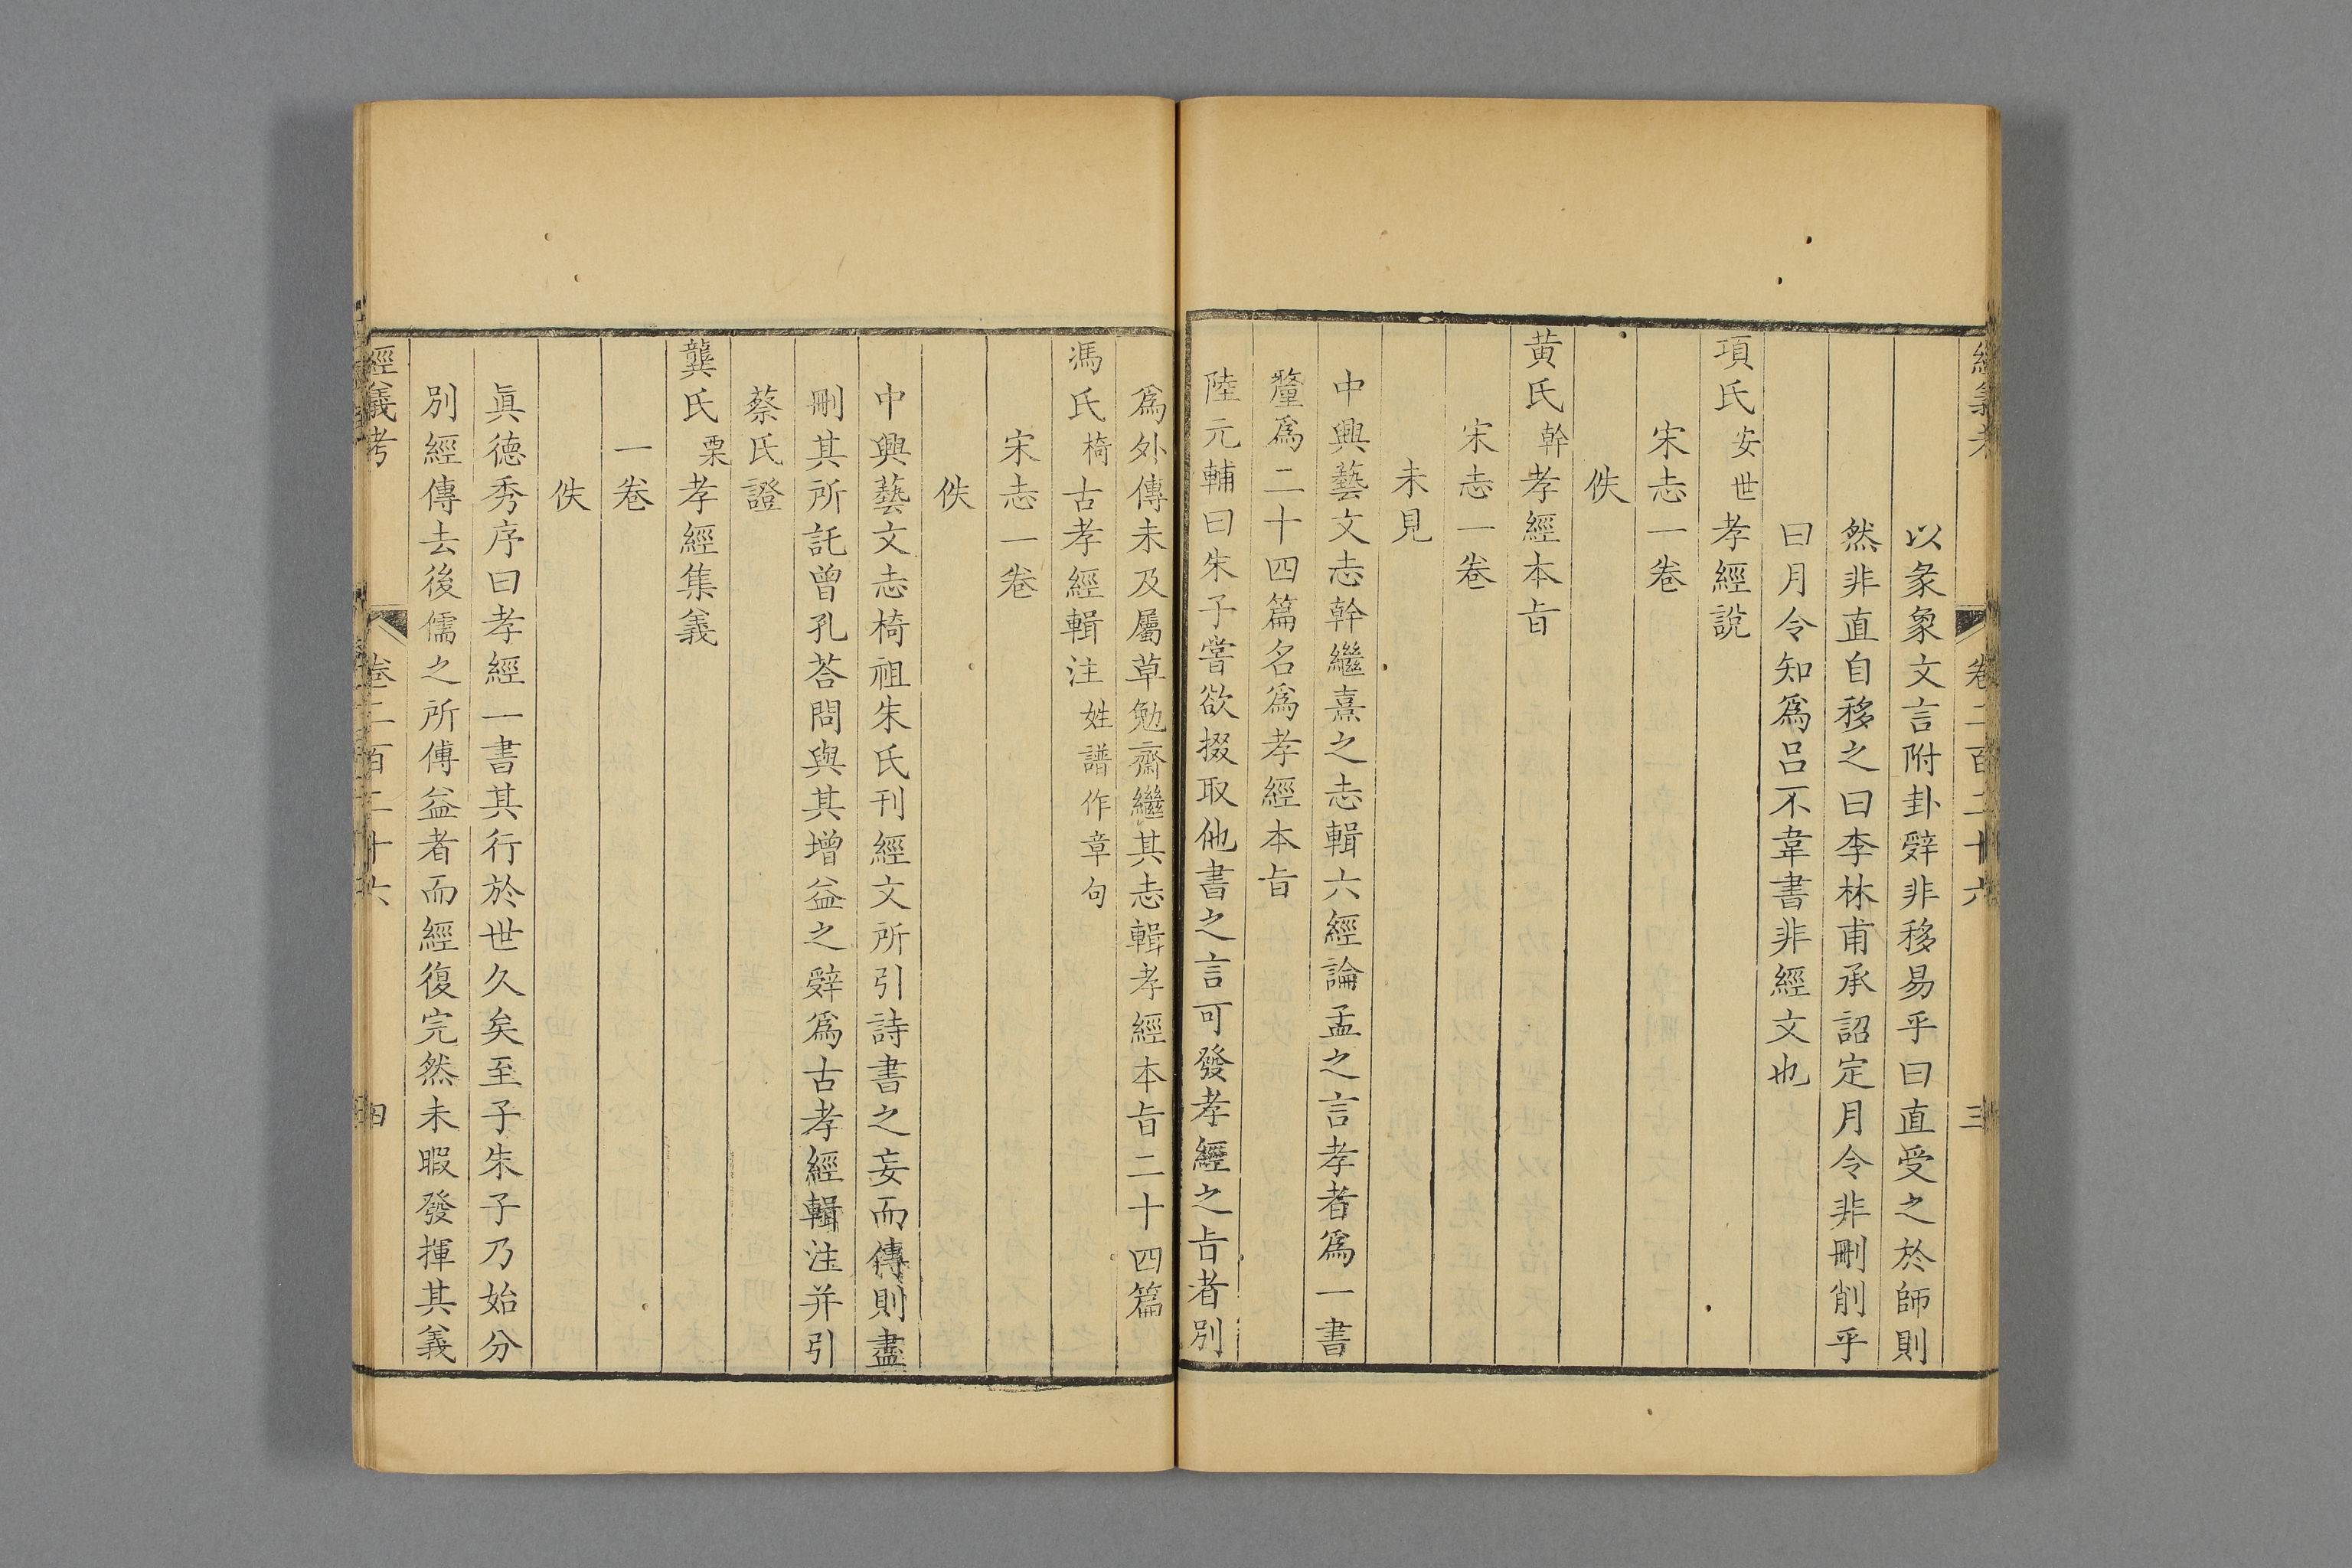 經義考 卷二百二十六 三
以彖象文言附卦辤非移易乎曰直受之於師則
然非直自移之曰李林甫承詔定月令非刪削乎
曰月令知爲呂不韋書非經文也
項氏安世孝經說
宋志一卷
佚
黄氏幹孝經本旨
宋志一卷
未見
中興藝文志幹繼熹之志輯六經論孟之言孝者爲一書
釐爲二十四篇名爲孝經本旨
陸元輔曰朱子嘗欲掇取他書之言可發孝經之旨者別
爲外傳未及屬草勉齋繼其志輯孝經本旨二十四篇
馮氏椅古孝經輯注姓譜作章句
宋志一卷
佚
中興藝文志椅祖朱氏刊經文所引詩書之妄而傳則盡
刪其所託曾孔荅問與其增益之辤爲古孝經輯注并引
蔡氏證
龔氏栗孝經集義
一卷
佚
眞德秀序曰孝經一書其行於世久矣至子朱子乃始分
別經傳去後儒之所傅益者而經復完然未暇發揮其義
經義考 卷二百二十六 四